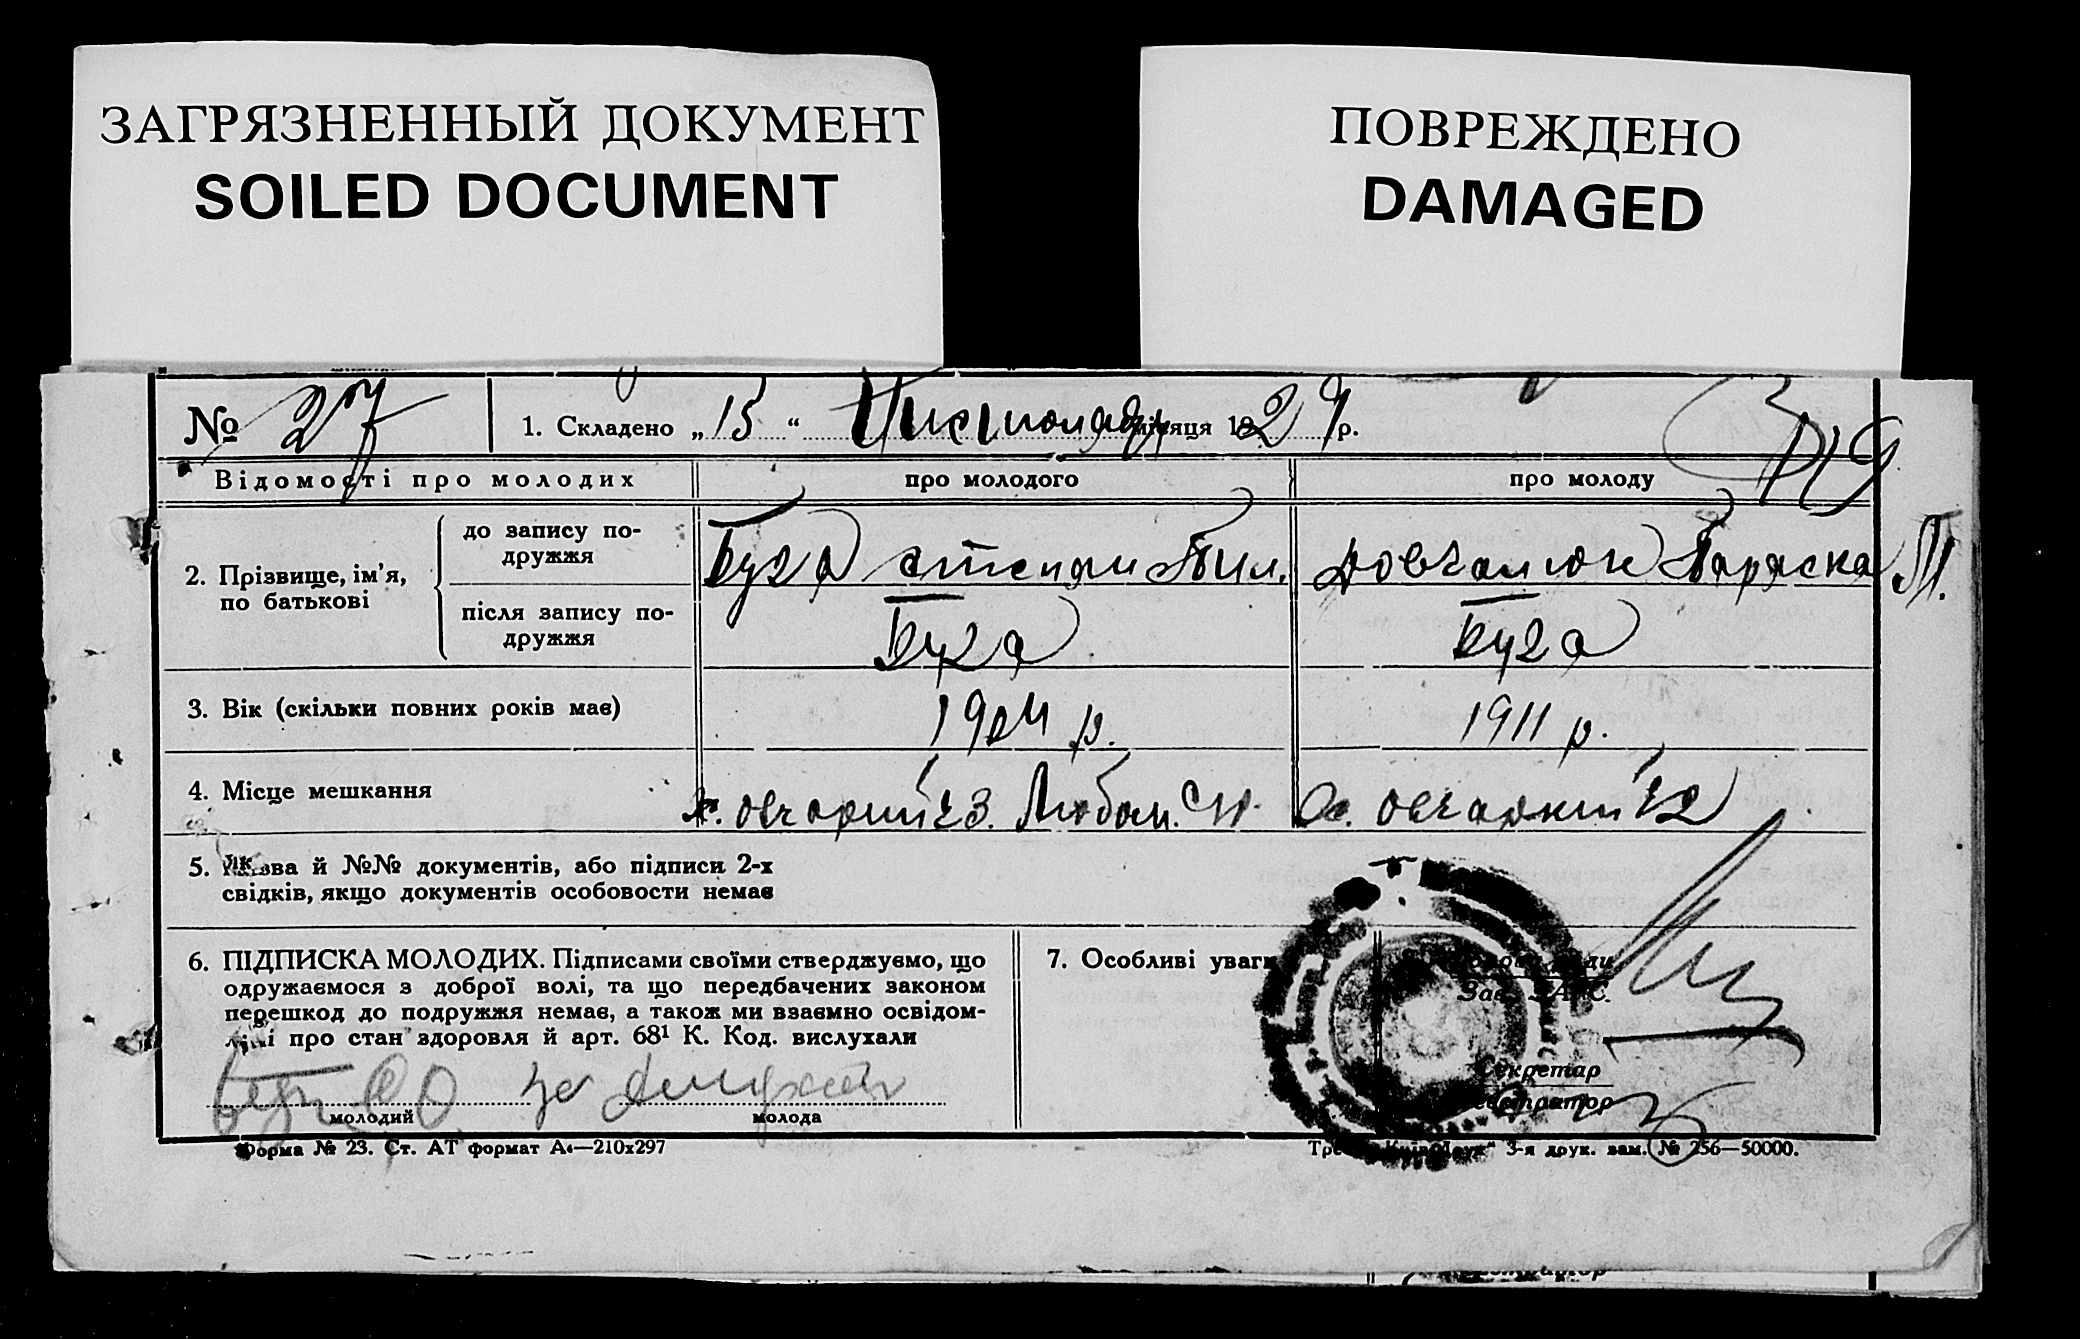 ЗАГРЯЗНЕННЫЙ ДОКУМЕНТ
SOILED DOCUMENT
ПОВРЕЖДЕНО
DAMAGED
№ 27
1. Складено „15“ Листопада місяця 1929 р.
Відомості про молодих
про молодого
про молоду
2. Прізвище, ім'я, по батькові
до запису подружжя
Буга Степан
Довчанюк Параска М.
після запису подружжя
Буга
Буга
3. Вік (скільки повних років має)
1904 р.
1911 р.
4. Місце мешкання
5. Назва й №№ документів, або підписи 2-х
свідків, якщо документів особовости немає
6. ПІДПИСКА МОЛОДИХ. Підписами своїми стверджуємо, що
одружаємося з доброї волі, та що передбачених законом
перешкод до подружжя немає, а також ми взаємно освідом-
лені про стан здоровля й арт. 68¹ К. Код. вислухали
молодий
молода
7. Особливі уваги
Зав. ЗАГС
Секретар
Реєстратор
Форма № 23. Ст. АТ формат А4—210x297
3-я друк. зам. № 256—50000.